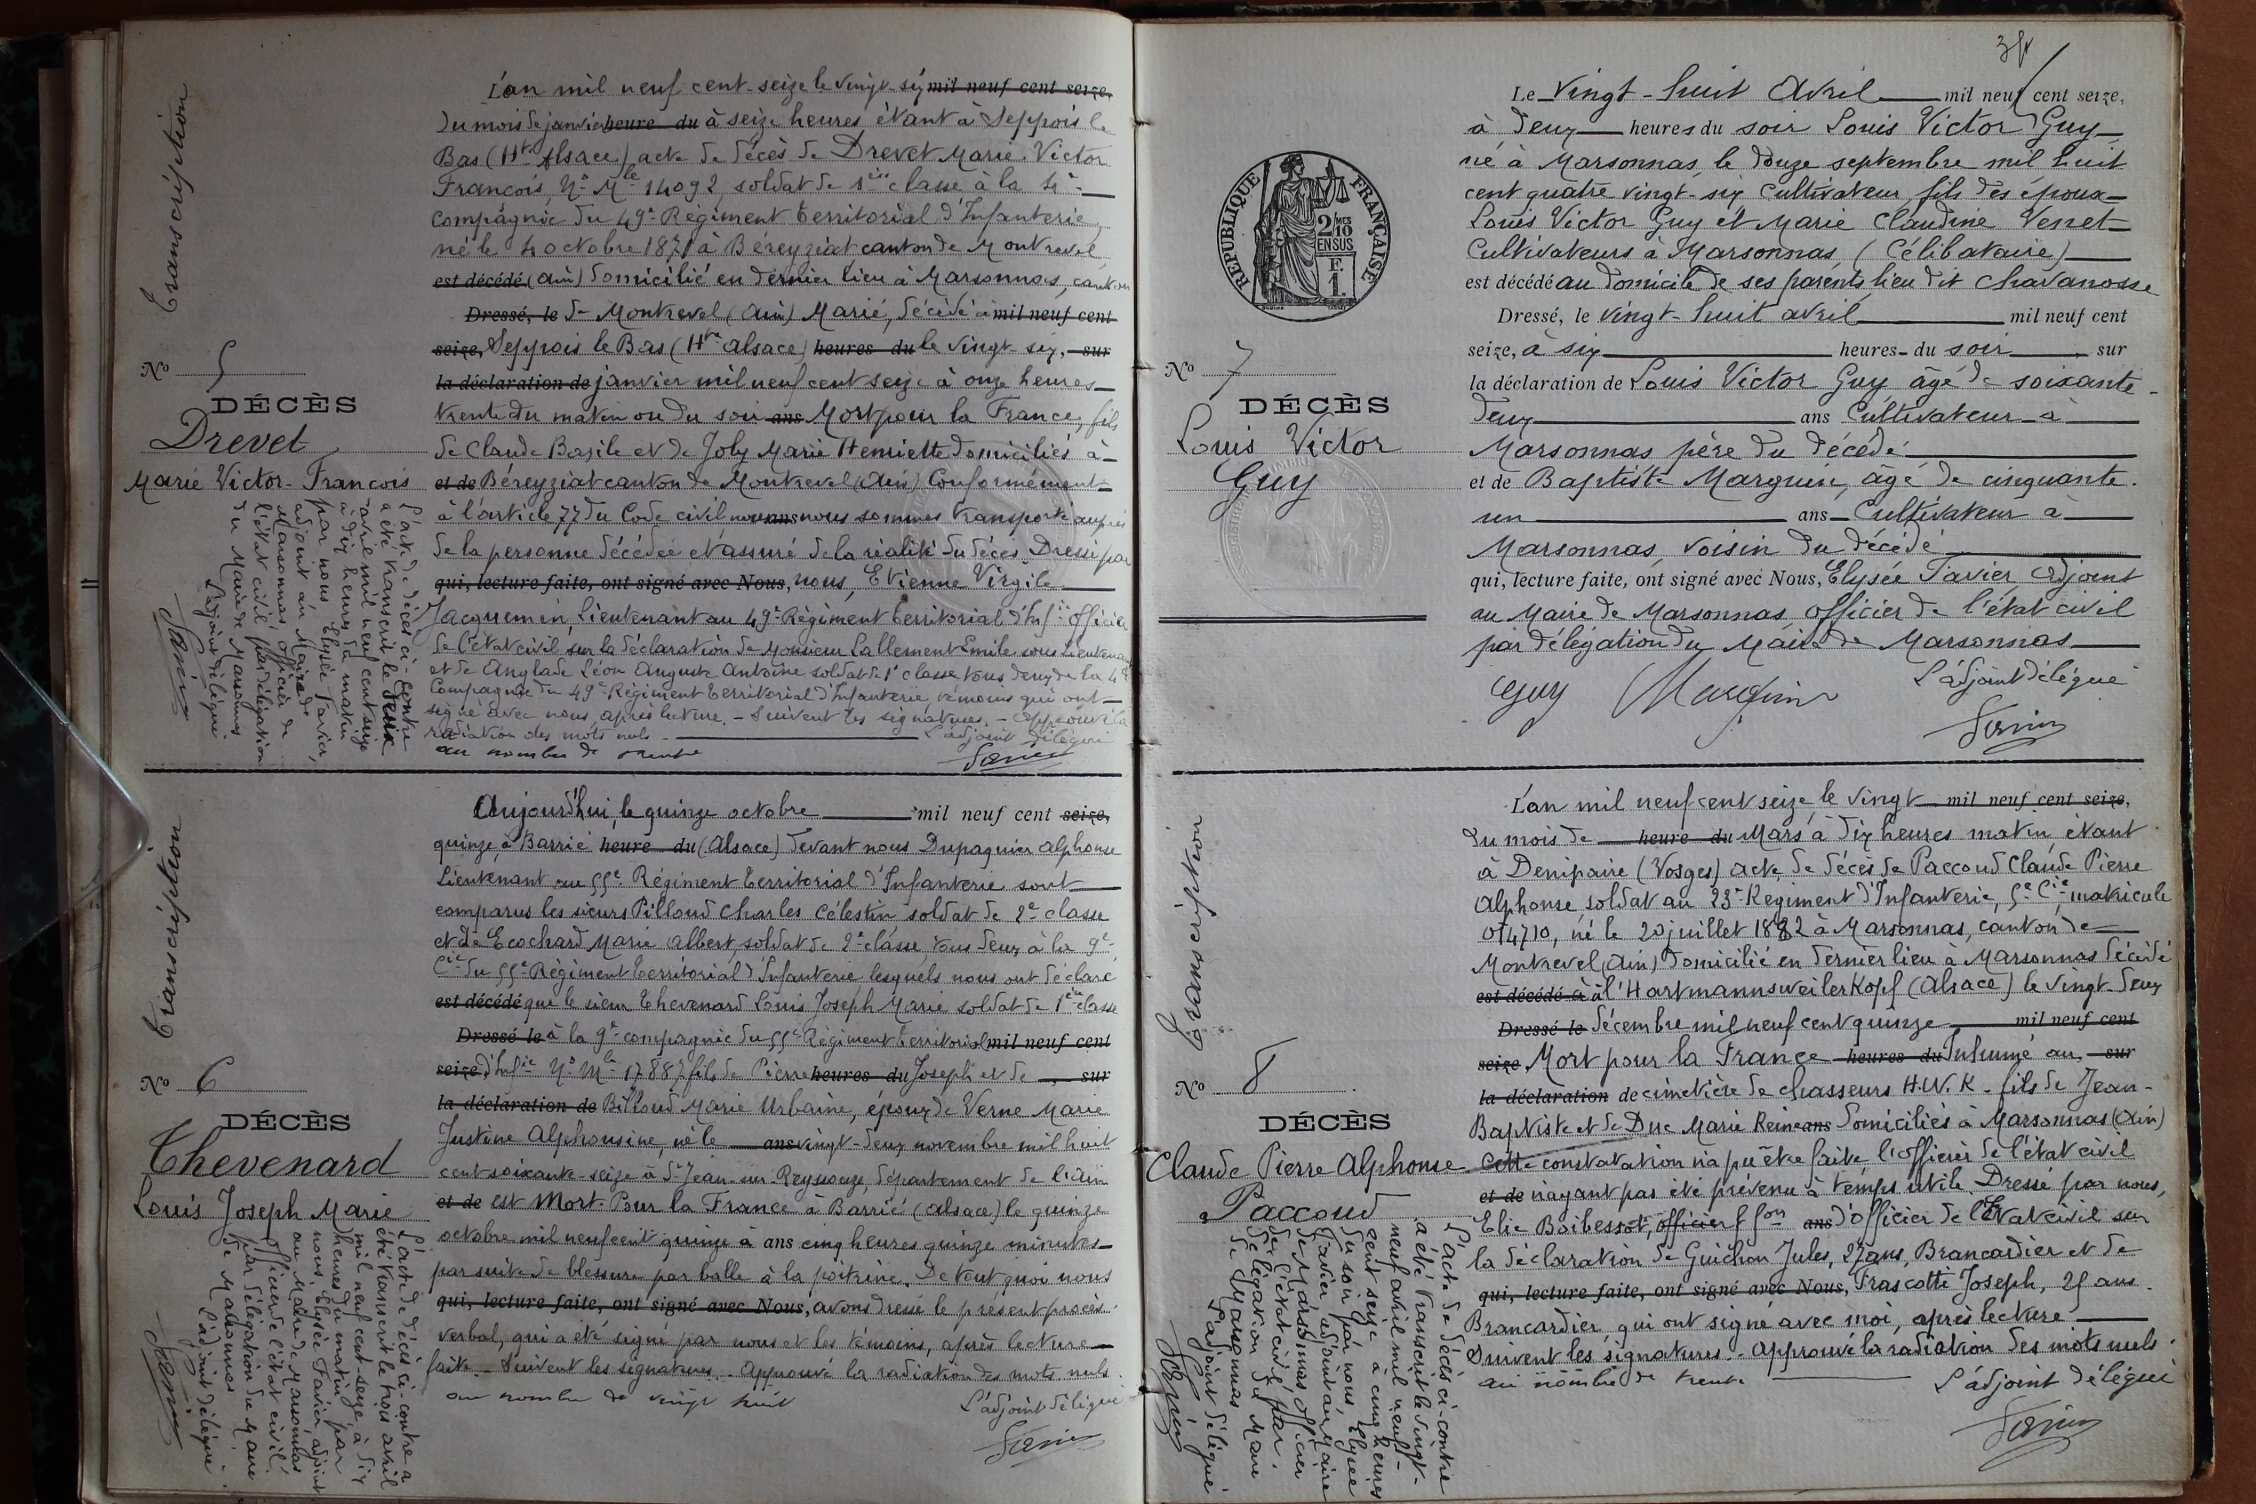 Transcription
N° 5
DÉCÈS
Drevet
Marie Victor-François
L'an mil neuf cent-seize le vingt-six mil neuf cent seize,
du mois de janvier heure du à seize heures étant à Seppois le
Bas (Hte Alsace) acte de décès de Drevet Marie Victor
François, N° Mle 14092, soldat de 1ère classe à la 4e
compagnie du 49e Régiment territorial d'Infanterie
né le 4 octobre 1871 à Béreyziat canton de Montrevel
est décédé (ain) domicilié en dernier lieu à Marsonnas, canton
Dressé, le de Montrevel (ain) Marié, décédé à mil neuf cent
seize, Seppois le Bas (Hte alsace) heures du le vingt-six, sur
la déclaration de janvier mil neuf cent seize à onze heures
trente du matin ou du soir ans Mort pour la France, fils
de Claude Basile et de Joly Marie Henriette domiciliés à
et de Béreyziat canton de Montrevel (ain) Conformément
à l'article 77 du Code civil nous ans nous sommes transporté auprès
de la personne décédée et assuré de la réalité du décès. Dressé par
qui, lecture faite, ont signé avec Nous, nous, Etienne Virgile
Jacquemin, Lieutenant au 49e Régiment territorial d'Infie officier
de l'état civil sur la déclaration de Monsieur Lallement Emile sous Lieutenant
et de Anglade Léon Auguste Antoine soldat de 1e classe tous deux de la 4e
Compagnie du 49e Régiment territorial d'Infanterie, témoins qui ont
signé avec nous après lecture. - Suivent les signatures. - Approuvé la
radiation des mots nuls - L'adjoint délégué
au nombre de trente
Favier
L'acte de décès ci-contre
a été transcrit le deux
avril mil neuf cent seize
à dix heures du matin
par nous Elysée Favier,
adjoint au Maire de
Marsonnas officier de
l'état civil par délégation
du Maire de Marsonnas
L'adjoint délégué
Favier
Transcription
N° 6
DÉCÈS
Thevenard
Louis Joseph Marie
Aujourd'hui, le quinze octobre mil neuf cent seize,
quinze, à Barrié heure du (Alsace) devant nous Dupaquier alphonse
Lieutenant au 55e Régiment territorial d'Infanterie sont
comparus les sieurs Pilloud Charles Célestin soldat de 2e classe
et de Ecochard Marie Albert, soldat de 2e classe, tous deux à la 9e
Cie du 55e Régiment territorial d'Infanterie lesquels nous ont déclaré
est décédé que le sieur Thevenard Louis Joseph Marie soldat de 1ère classe
Dressé le à la 9e compagnie du 55e Régiment territorial mil neuf cent
seize d'Infie N° Mle 17887 fils de Pierre heures du Joseph et de, sur
la déclaration de Billoud Marie Urbaine, époux de Verne Marie
Justine Alphonsine, né le ans vingt-deux novembre mil huit
cent soixante-seize à St Jean-sur Reyssouze, département de l'ain
et de est Mort-Pour la France à Barrié (alsace) le quinze
octobre mil neuf cent quinze à ans cinq heures quinze minutes
par suite de blessure par balle à la poitrine. De tout quoi nous
qui, lecture faite, ont signé avec Nous, avons dressé le présent procès
verbal, qui a été signé par nous et les témoins, après lecture
faite. - Suivent les signatures - Approuvé la radiation des mots nuls
au nombre de vingt huit L'adjoint délégué
Favier
L'acte de décès ci-contre a
été transcrit le trois avril
mil neuf cent seize, à dix
heures du matin, par
nous Elysée Favier, adjoint
au Maire de Marsonnas
officier de l'état civil
par délégation du Maire
de Marsonnas
L'adjoint délégué
Favier
RÉPUBLIQUE FRANÇAISE
2/10 MES
EN SUS
F.
1.
N° 7
DÉCÈS
Louis Victor
Guy
Le Vingt-huit Avril mil neuf cent seize,
à deux heures du soir Louis Victor Guy
né à Marsonnas, le douze septembre mil huit
cent quatre vingt-six cultivateur fils des époux
Louis Victor Guy et Marie Claudine Verret
Cultivateurs à Marsonnas, (Célibataire)
est décédé au domicile de ses parents, lieu dit Chavanosse
Dressé, le vingt-huit avril mil neuf cent
seize, à six heures du soir sur
la déclaration de Louis Victor Guy âgé de soixante-
deux ans Cultivateur à
Marsonnas père du décédé
et de Baptiste Marguin, âgé de cinquante-
un ans Cultivateur à
Marsonnas, voisin du décédé
qui, lecture faite, ont signé avec Nous, Elysée Favier adjoint
au Maire de Marsonnas officier de l'état civil
par délégation du Maire de Marsonnas
Guy Marguin L'adjoint délégué
Favier
Transcription
N° 8
DÉCÈS
Claude Pierre Alphonse
Paccoud
L'an mil neuf cent seize le vingt mil neuf cent seize,
du mois de heure du Mars à dix heures matin étant
à Denipaire (Vosges) acte de décès de Paccoud Claude Pierre
Alphonse soldat au 23e Régiment d'Infanterie, 5e Cie, matricule
014710, né le 20 juillet 1882 à Marsonnas, canton de
Montrevel (ain) domicilié en dernier lieu à Marsonnas décédé
est décédé à à l'Hartmannsweilerkopf (Alsace) le vingt-deux
Dressé le décembre mil neuf cent quinze mil neuf cent
seize Mort pour la France heures du Inhumé au sur
la déclaration de cimetière de chasseurs H.W.K. fils de Jean-
Baptiste et de Duc Marie Reine ans domiciliés à Marsonnas (ain)
Cette constatation n'a pu être faite l'officier de l'état civil
et de n'ayant pas été prévenu à temps utile. Dressé par nous,
Elie Boibessot, officier f fon ans d'officier de l'Etat civil sur
la déclaration de Guichon Jules, 27 ans, Brancardier et de
qui, lecture faite, ont signé avec Nous, Frascotti Joseph, 25 ans
Brancardier qui ont signé avec moi, après lecture
Suivent les signatures. - Approuvé la radiation des mots nuls
au nombre de trente L'adjoint délégué
Favier
L'acte de décès ci-contre
a été transcrit le vingt-
neuf avril mil neuf-
cent seize à cinq heures
du soir par nous, Elysée
Favier adjoint au Maire
de Marsonnas officier
de l'état civil par
délégation du Maire
de Marsonnas
L'adjoint délégué
Favier